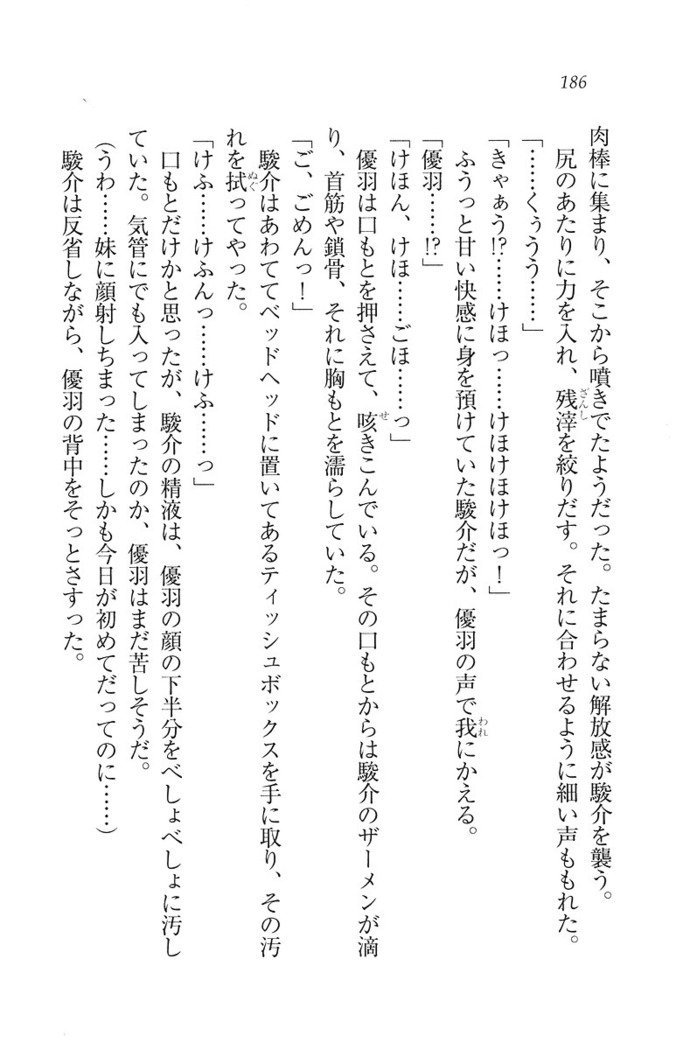 186
肉棒に集まり、そこから噴きでたようだった。たまらない解放感が駿介を襲う。
尻のあたりに力を入れ、残滓を絞りだす。それに合わせるように細い声ももれた。
「……くぅうう……」
「きゃぁう!?……けほっ……けほけほけほっ！」
ふうっと甘い快感に身を預けていた駿介だが、優羽の声で我にかえる。
「優羽……!?」
「けほん、けほ……ごほ……っ」
優羽は口もとを押さえて、咳きこんでいる。その口もとからは駿介のザーメンが滴
り、首筋や鎖骨、それに胸もとを濡らしていた。
「ご、ごめんっ！」
駿介はあわててベッドヘッドに置いてあるティッシュボックスを手に取り、その汚
れを拭ってやった。
「けふ……けふんっ……けふ……っ」
口もとだけかと思ったが、駿介の精液は、優羽の顔の下半分をべしょべしょに汚し
ていた。気管にでも入ってしまったのか、優羽はまだ苦しそうだ。
（うわ……妹に顔射しちまった……しかも今日が初めてだってのに……）
駿介は反省しながら、優羽の背中をそっとさすった。